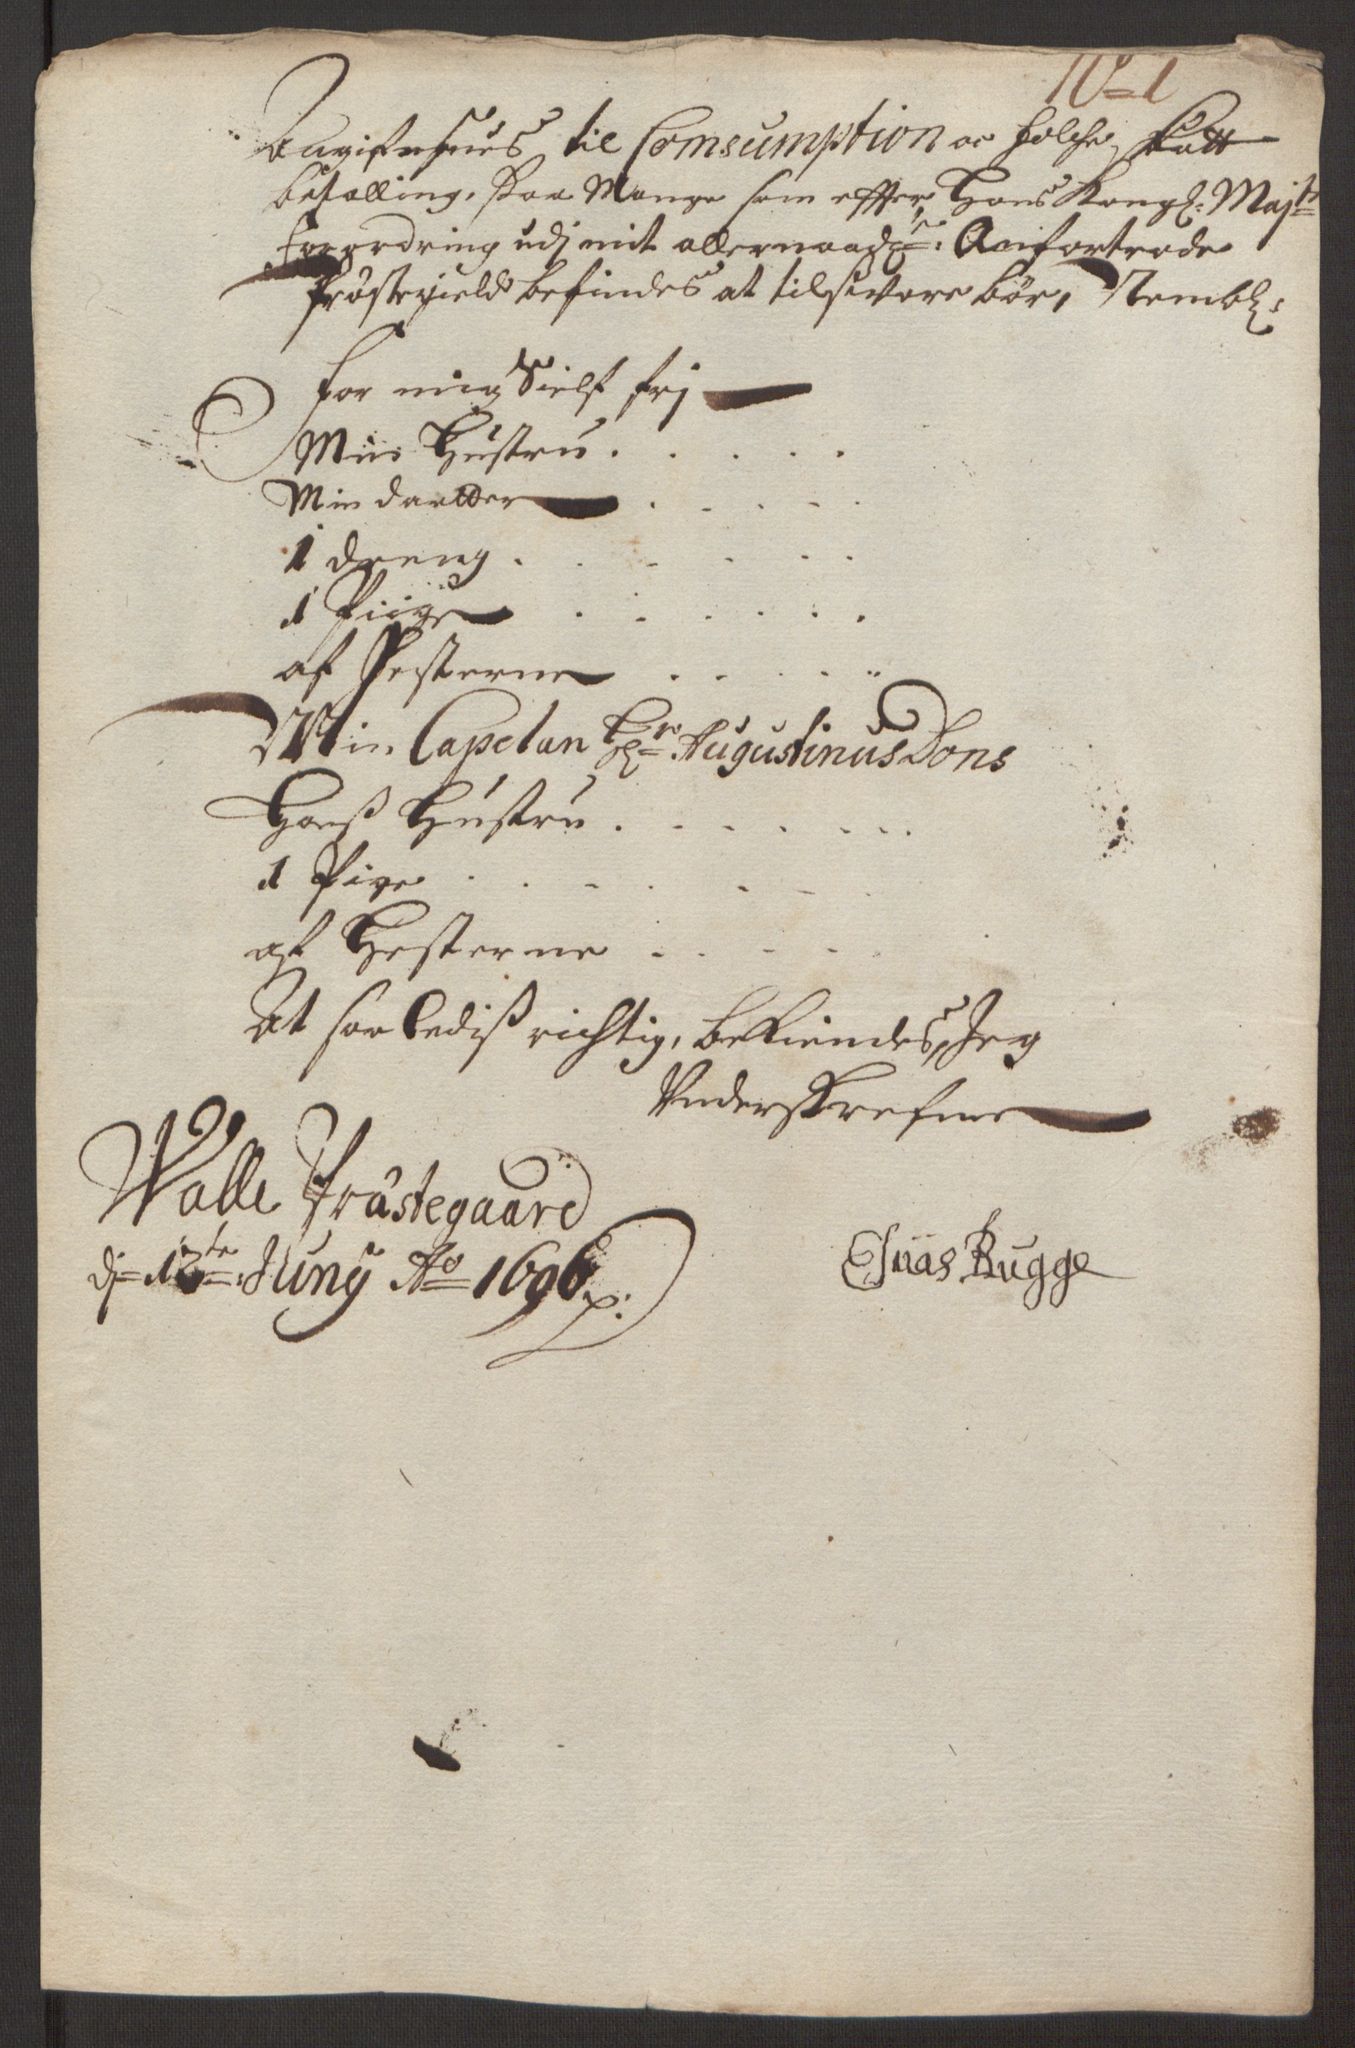 No 1
Angifuelses til Comsumption oc folche Skatt
befalling, saa Mange som effter Hans Kongl: Majts
forordning udj mit allernaadgst: Anfortrode
Præstegield befindes at tilsvare bør, Nembl:
for mig Sielf frj
Min Hustru
Min daatter
1 dreng
1 Piige
af Hesterne
Min Capelan Hr Augustinus Dons
Hans Hustru
1 Pige
af Hesterne
At saalediß rigtig, bekiendes Jeg
Underskrefne
Walle Præstegaard
d 12te Juny Ao 1696
Elias Rugge